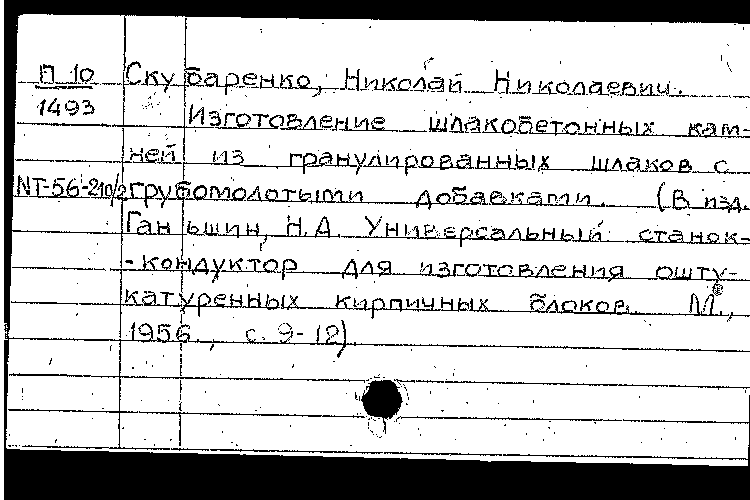 П 10 Скубаренко, Николай Николаевич.
1493 Изготовление шлакобетонных кам-
ней из гранулированных шлаков с
NT-56-210/2 грубомолотыми добавками. (В изд.
Ганьшин, Н.А. Универсальный станок-
-кондуктор для изготовления ошту-
катуренных кирпичных блоков. М.,
1956., с. 9-12).